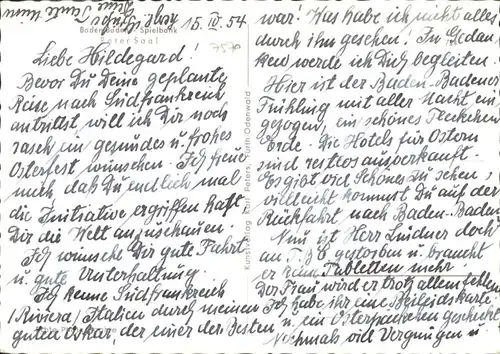 15. IV. 54
Baden-Baden - Spielbank
Roter Saal
Liebe Hildegard!
Bevor Du Deine geplante
Reise nach Südfrankreich
antrittst, will ich Dir noch
rasch ein gesundes u. frohes
Osterfest wünschen. Ich freue
mich daß Du endlich mal
die Initiative ergriffen hast
Dir die Welt anzuschauen.
Ich wünsche Dir gute Fahrt
u. gute Unterhaltung.
Ich kenne Südfrankreich
(Riviera) Italien durch meinen
guten Oskar, der einer der Besten
Kunstverlag Karl Peters, Fürth Odenwald
war. Was habe ich nicht alles
durch ihn gesehen! In Gedan
ken werde ich Dich begleiten.
Hier ist der Baden-Badener
Frühling mit aller Macht ein
gezogen, ein schönes Fleckchen
Erde. Die Hotels für Ostern
sind restlos ausverkauft.
Es gibt viel Schönes zu sehen,
vielleicht kommst Du auf der
Rückfahrt nach Baden-Baden
Nun ist Herr Lüdner doch
an T.B. gestorben u. braucht
er keine Tabletten mehr.
Der Frau wird er trotz allem fehlen
Ich habe ihr eine Beileidskarte
u. ein Osterpäckchen geschickt.
Nochmals viel Vergnügen u.